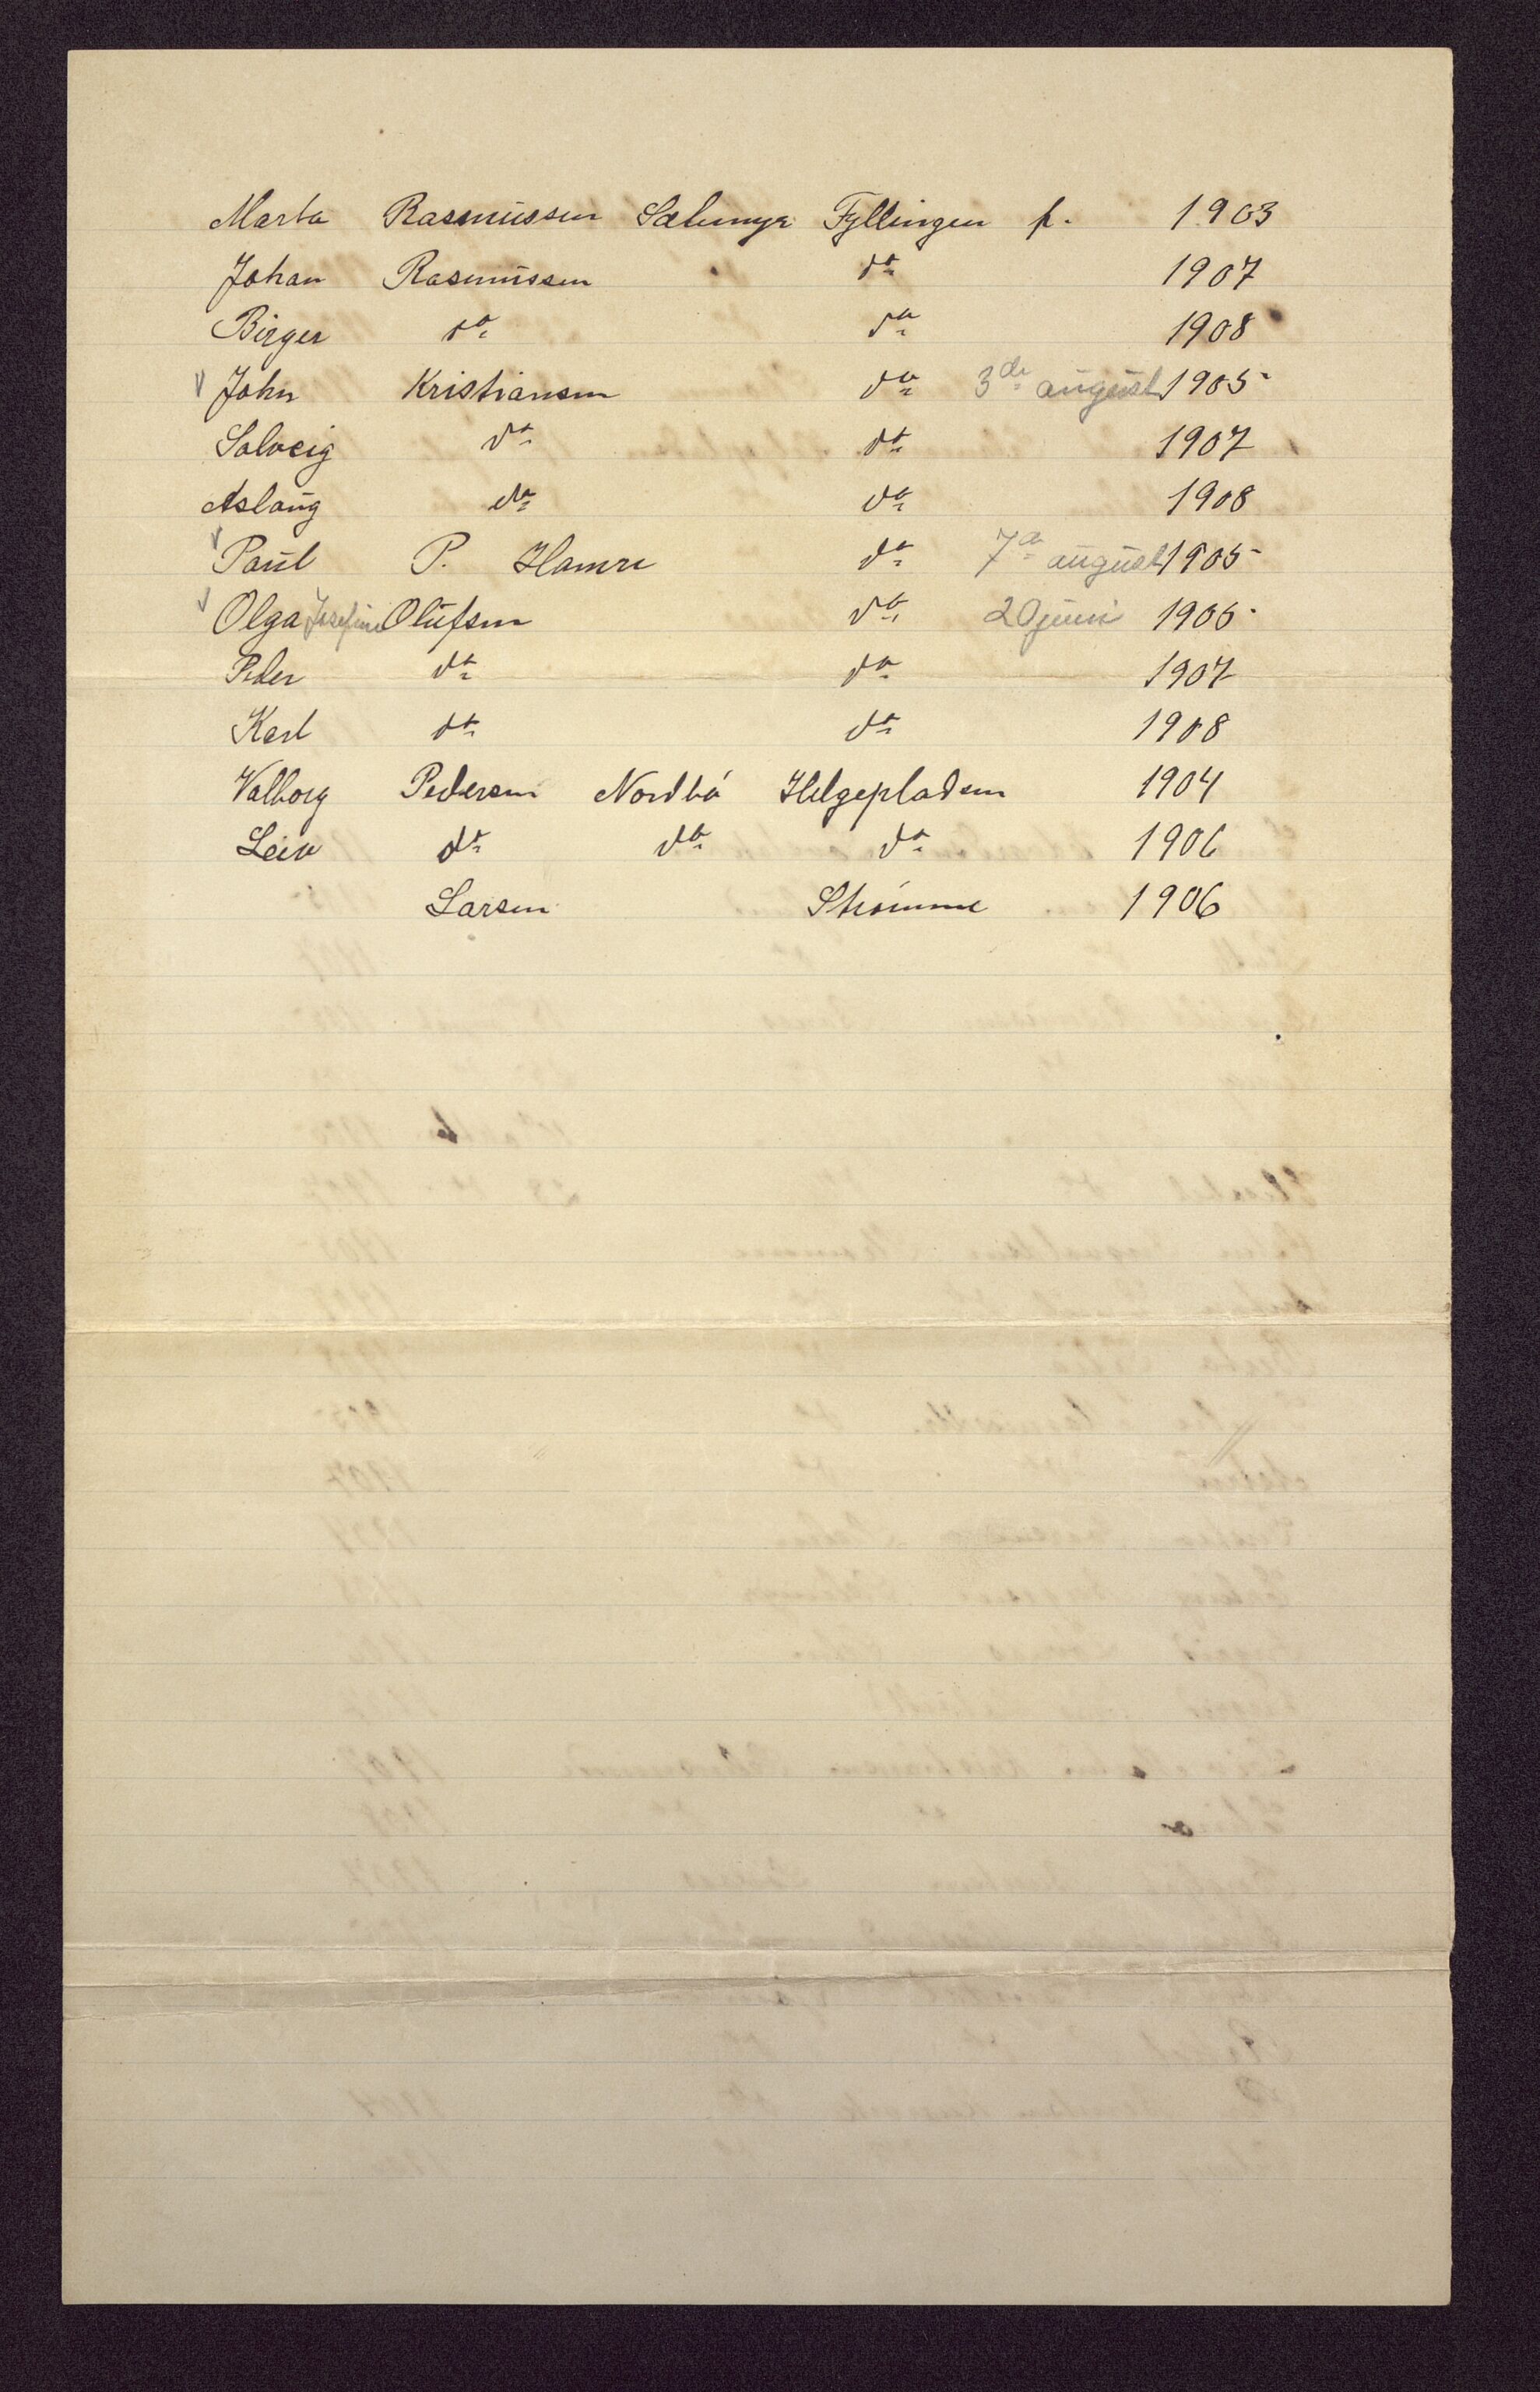 Marta Rasmussen Sælemyr Fyllingen f. 1903
Johan Rasmussen do 1907
Birger do do 1908
v John Kristiansen do 3de august 1905
Solveig do do 1907
Aslaug do do 1908
v Paul P. Hamre do 7de august 1905
v Olga Josefine Olufsen do 20 juni 1905
Peder do do 1907
Karl do do 1908
Valborg Pedersen Nordbø Helgepladsen 1904
Leiv do do do 1906
Larsen Strømme 1906